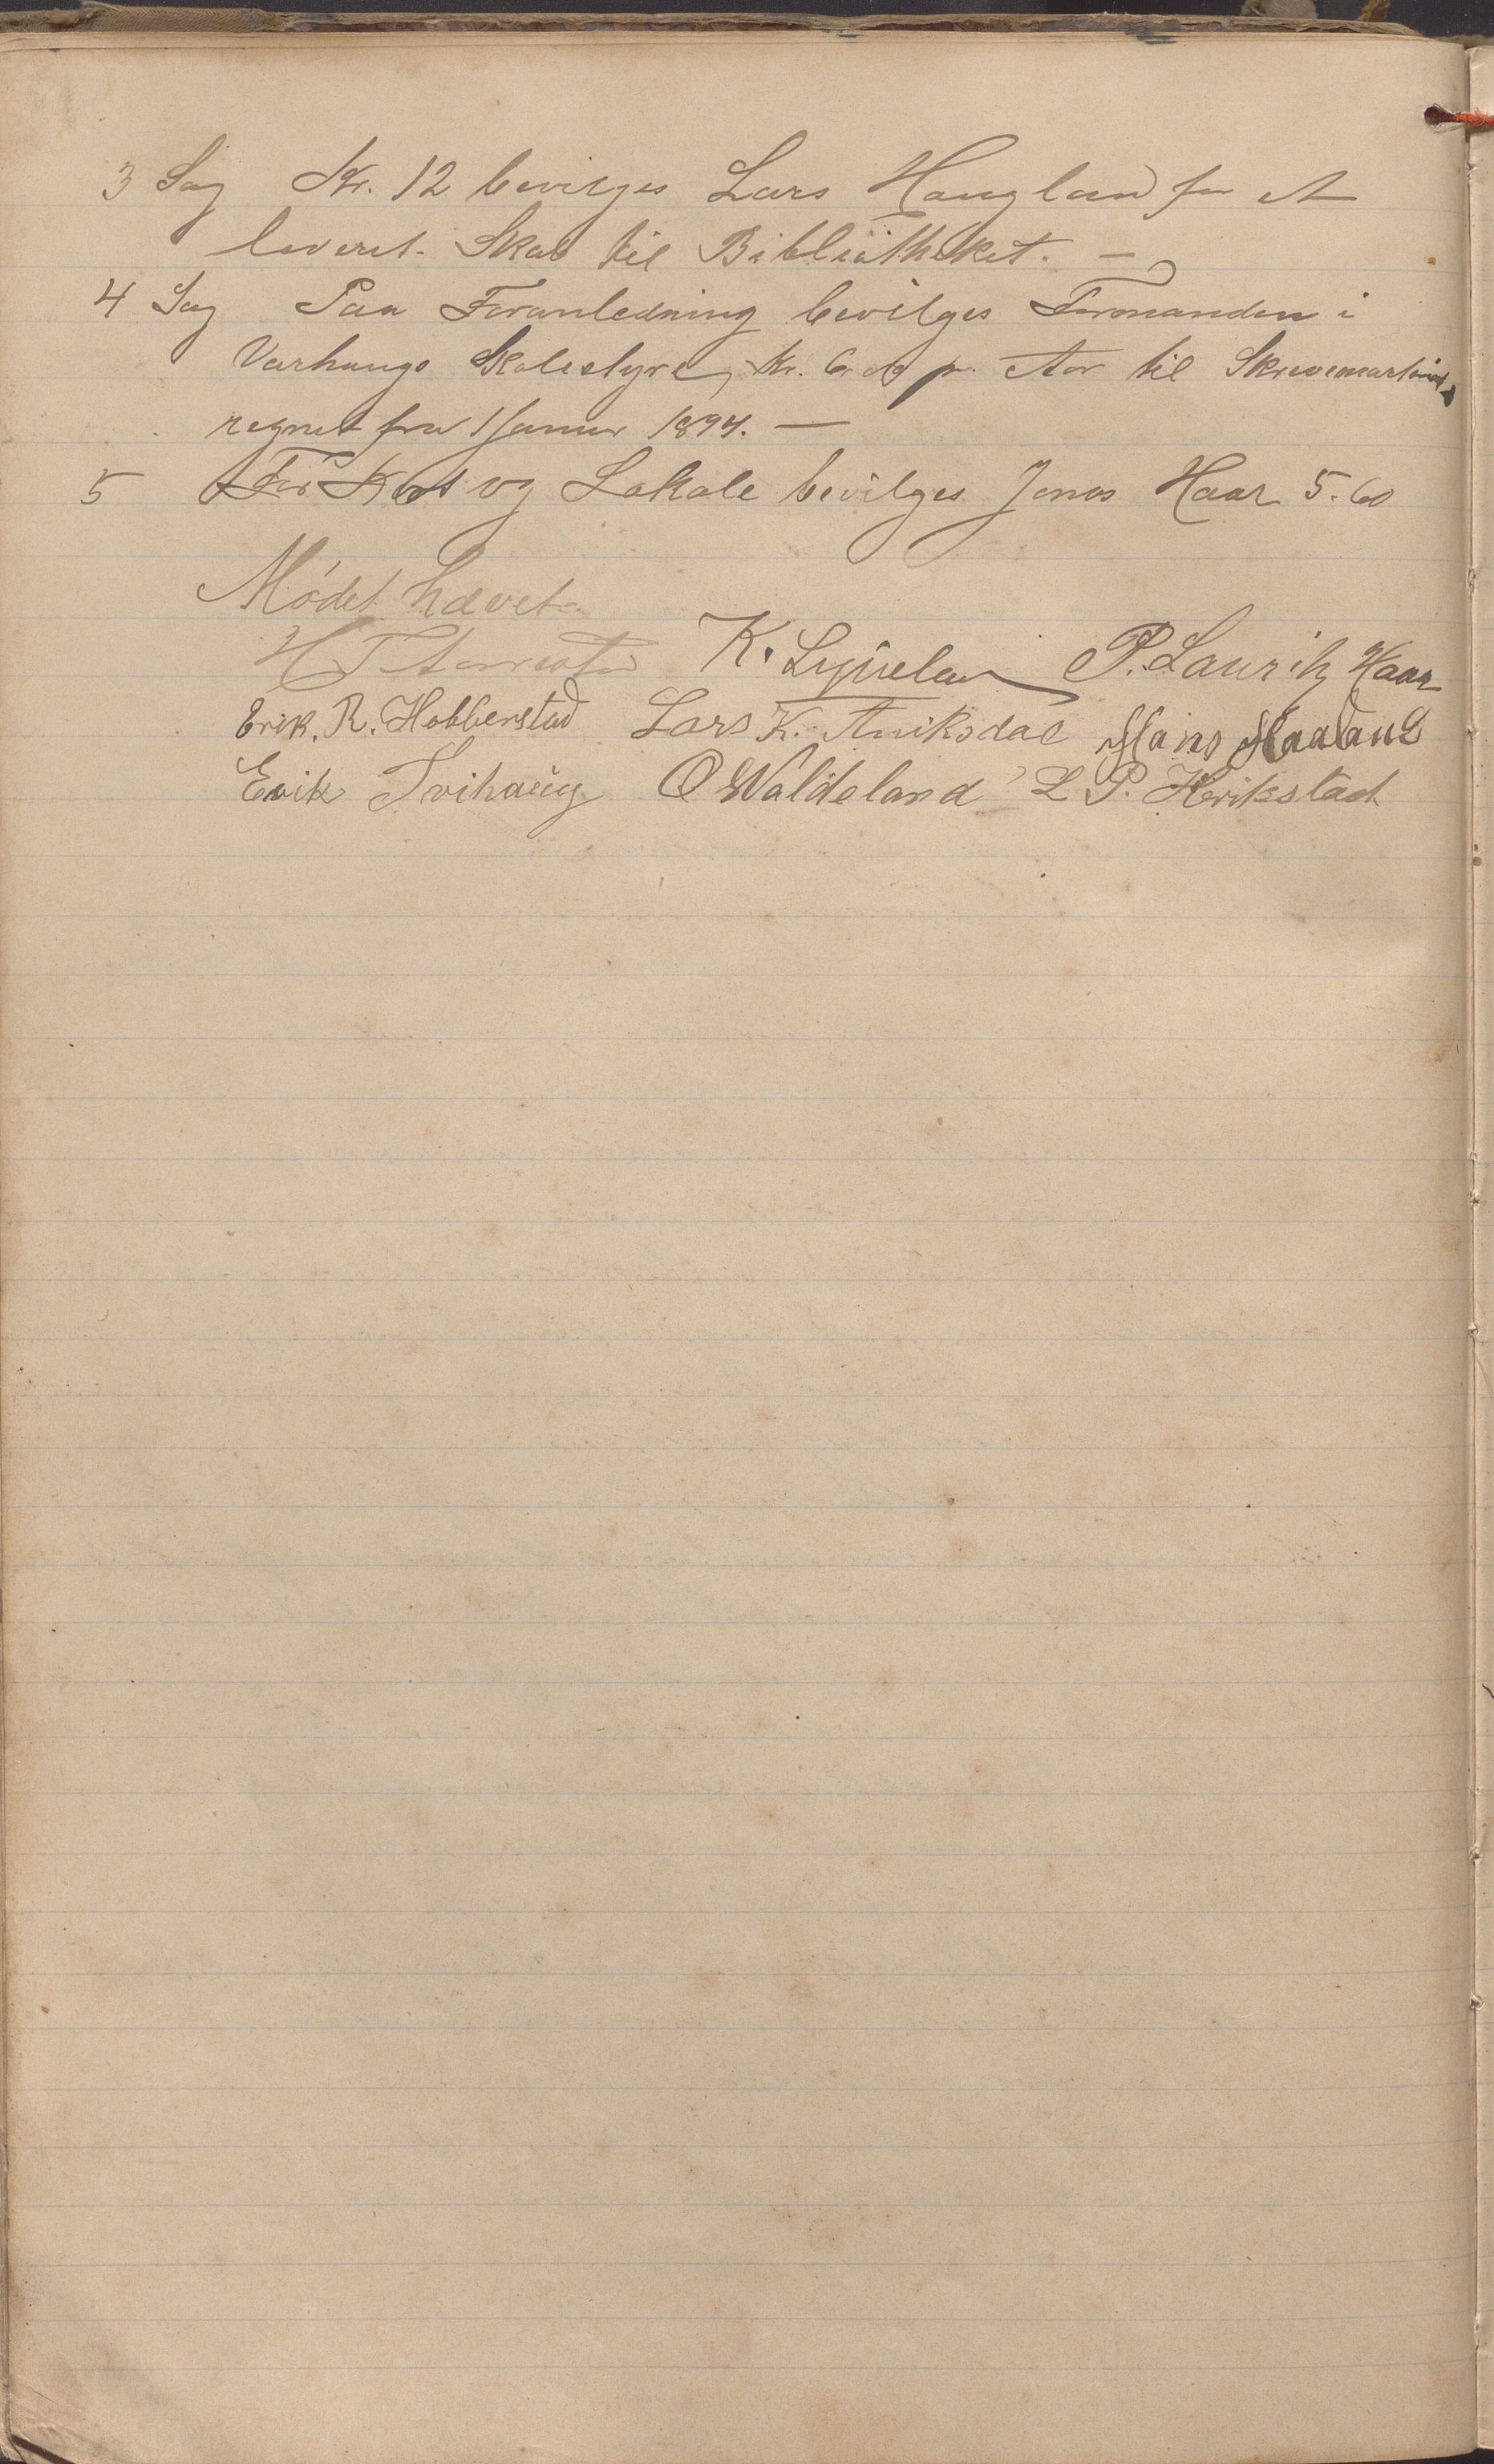 3 Sag Kr. 12 bevilges Lars Haugland for et
leveret Skab til Bibliotheket. —
4 Sag Paa Foranledning bevilges Formanden i
Varhaugs Skolestyre, Kr. 6.00 pr. Aar til Skrivemateriel
regnet fra 1 Januar 1894. —
5 For Kost og Lokale bevilges Jonas Haar 5.60
Mødet hævet.
K. P. Lauritz Haar
Erik. R. Hobberstad Lars K. Aniksdal Hans Haaland
Erik Tvihaug O Waldeland L P. Herikstad